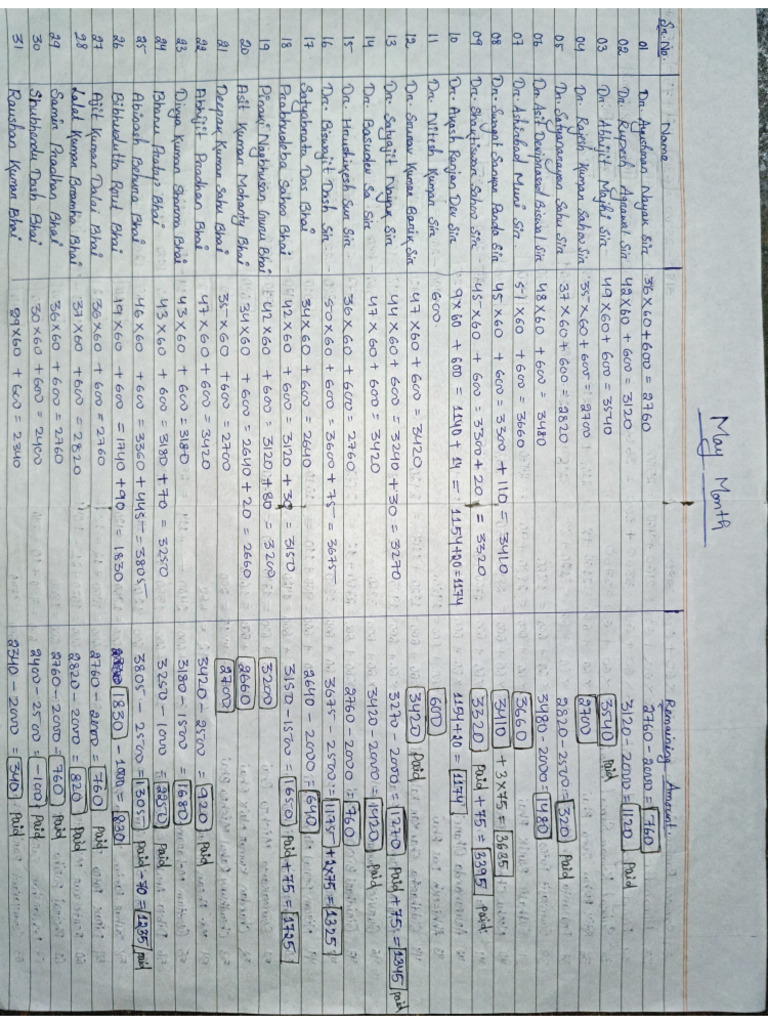 May Month
Sr. No. Name Remaining Amount
01 Dr. Ayushman Nayak Sir 36×60+600 = 2760 2760-2000 = 760
02 Dr. Rupesh Agrawal Sir 42×60 + 600 = 3120 3120-2000 = 1120 Paid
03 Dr. Abhijit Majhi Sir 49×60 + 600 = 3540 3540 Paid
04 Dr. Rajesh Kumar Sahoo Sir 35×60 + 600 = 2700 2700
05 Dr. Satyanarayan Sahu Sir 37×60 + 600 = 2820 2820-2500 = 320 Paid
06 Dr. Asit Deviprasad Biswal Sir 48×60 + 600 = 3480 3480-2000 = 1480
07 Dr. Ashirbad Muni Sir 51×60 + 600 = 3660 3660
08 Dr. Sangat Sanjay Panda Sir 45×60 + 600 = 3300 + 110 = 3410 3410 + 3×75 = 3635
09 Dr. Shaktiswar Sahoo Sir 45×60 + 600 = 3300 + 20 = 3320 3320 Paid + 75 = 3395 Paid
10 Dr. Avash Ranjan Dev Sir 9×60 + 600 = 1140 + 14 = 1154+20 = 1174 1154+20 = 1174
11 Dr. Nitesh Kumar Sir 600 600
12 Dr. Sourav Kumar Barik Sir 47×60 + 600 = 3420 3420 Paid
13 Dr. Satyajit Nayak Sir 44×60 + 600 = 3240 + 30 = 3270 3270-2000 = 1270 Paid + 75 = 1345 Paid
14 Dr. Basudev Sa Sir 47×60 + 600 = 3420 3420-2000 = 1420 Paid
15 Dr. Hrushikesh Sur Sir 36×60 + 600 = 2760 2760-2000 = 760
16 Dr. Biswajit Dash Sir 50×60 + 600 = 3600 + 75 = 3675 3675-2500 = 1175 + 2×75 = 1325
17 Satyabrata Das Bhai 34×60 + 600 = 2640 2640-2000 = 640
18 Prabhudeba Sahoo Bhai 42×60 + 600 = 3120 + 30 = 3150 3150-1500 = 1650 Paid + 75 = 1725
19 Pinaki Nagbhusan Guru Bhai 42×60 + 600 = 3120 + 80 = 3200 3200
20 Asit Kumar Mohanty Bhai 34×60 + 600 = 2640 + 20 = 2660 2660
21 Deepak Kumar Sahu Bhai 35×60 + 600 = 2700 2700
22 Abhijit Pradhan Bhai 47×60 + 600 = 3420 3420-2500 = 920 Paid
23 Divya Kumar Sharma Bhai 43×60 + 600 = 3180 3180-1500 = 1680
24 Bhanu Pratap Bhai 43×60 + 600 = 3180 + 70 = 3250 3250-1000 = 2250 Paid
25 Abinash Behura Bhai 46×60 + 600 = 3360 + 445 = 3805 3805-2500 = 1305 Paid - 70 = 1235 Paid
26 Bibhudutta Rout Bhai 19×60 + 600 = 1740 + 90 = 1830 1830 - 1000 = 830
27 Ajit Kumar Dalai Bhai 36×60 + 600 = 2760 2760-2000 = 760 Paid
28 Lalat Kumar Bramha Bhai 37×60 + 600 = 2820 2820-2000 = 820 Paid
29 Samir Pradhan Bhai 36×60 + 600 = 2760 2760-2000 = 760 Paid
30 Shubhendu Dash Bhai 30×60 + 600 = 2400 2400-2500 = -100 Paid
31 Raushan Kumar Bhai 29×60 + 600 = 2340 2340-2000 = 340 Paid